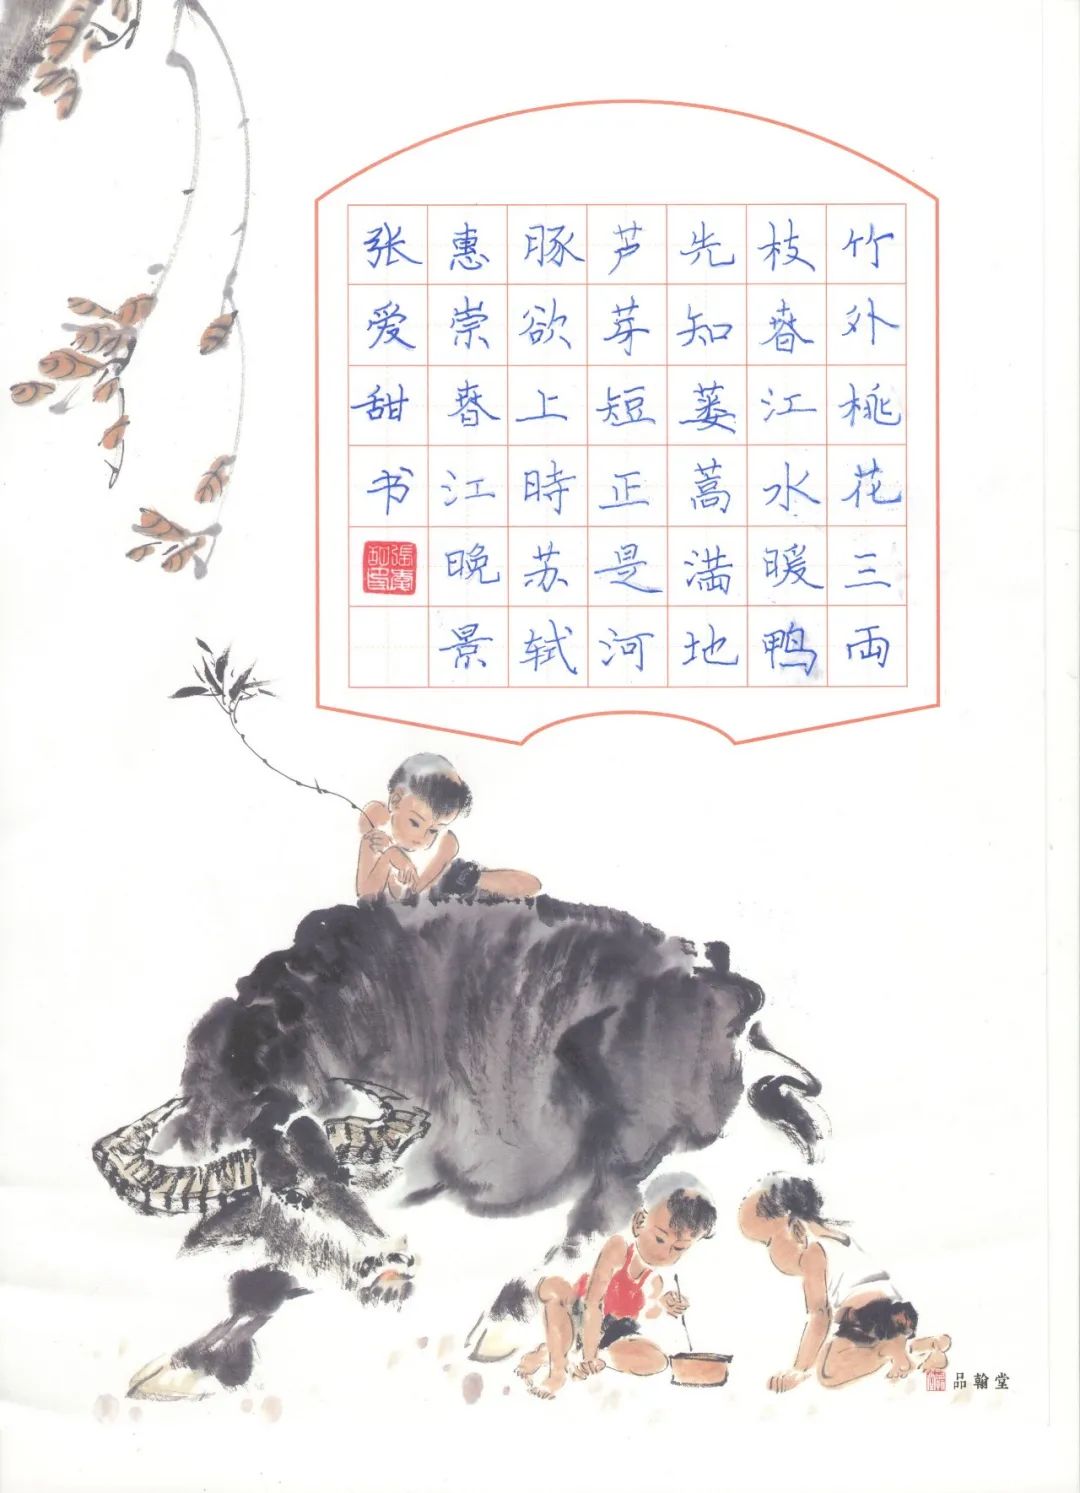 竹外桃花三両
枝春江水暖鸭
先知蒌蒿満地
芦芽短正是河
豚欲上時苏轼
惠崇春江晚景
张爱甜书
品翰堂